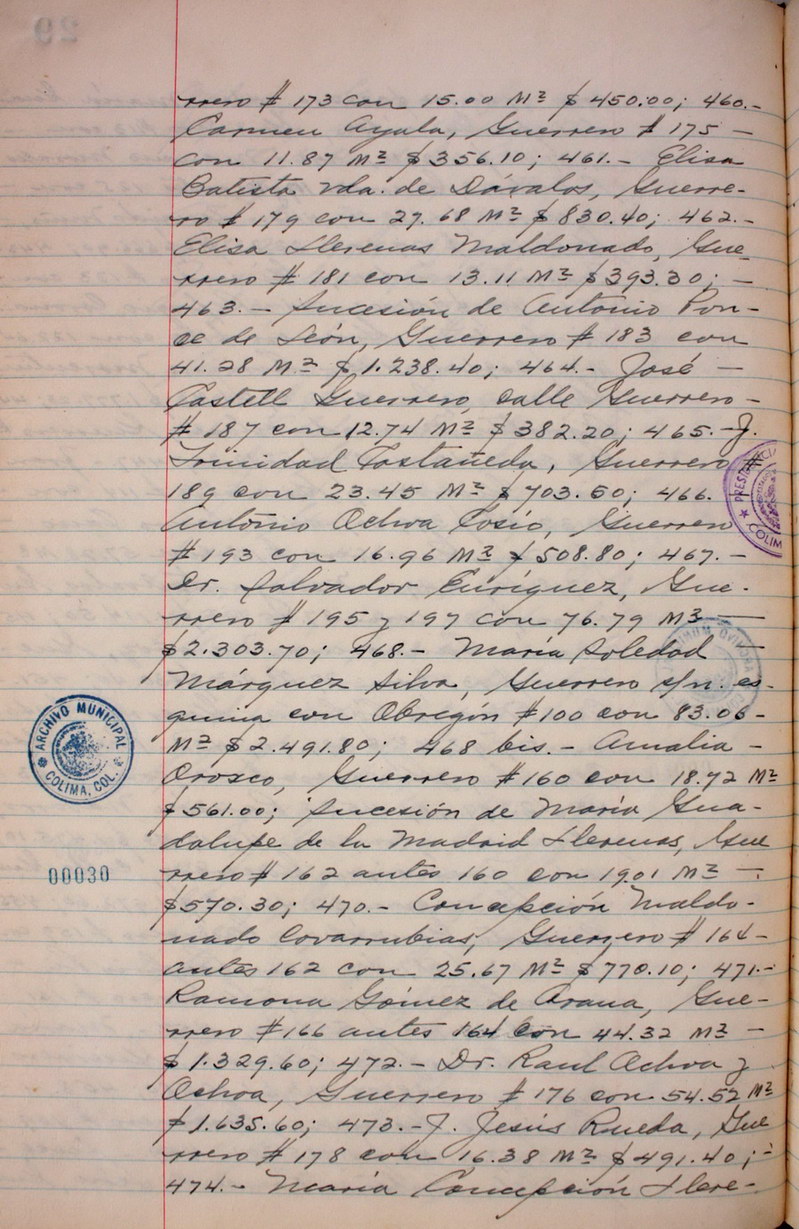 rrero # 173 con 15.00 M² $ 450.00; 460.-
Carmen Ayala, Guerrero # 175 —
con 11.87 M² $ 356.10; 461.- Elisa
Batista vda. de Dávalos, Guerre-
ro # 179 con 27.68 M² $ 830.40; 462.-
Elisa Llerenas Maldonado, Gue-
rrero # 181 con 13.11 M² $ 393.30; —
463.- Sucesión de Antonio Pon-
ce de León, Guerrero # 183 con
41.28 M² $ 1.238.40; 464.- José —
Castell Guerrero, calle Guerrero -
# 187 con 12.74 M² $ 382.20; 465.- J.
Trinidad Castañeda, Guerrero #
189 con 23.45 M² $ 703.50; 466.
Antonio Ochoa Cosío, Guerrero
# 193 con 16.96 M² $ 508.80; 467.-
Dr. Salvador Enríquez, Gue-
rrero # 195 y 197 con 76.79 M² —
$ 2.303.70; 468.- María Soledad —
Márquez Silva, Guerrero s/n. es-
quina con Obregón # 100 con 83.06 -
M² $ 2.491.80; 468 bis.- Amalia -
Orosco, Guerrero # 160 con 18.72 M²
$ 561.00; Sucesión de María Gua-
dalupe de la Madrid Llerenas, Gue
rrero # 162 antes 160 con 19.01 M² —
$ 570.30; 470.- Concepción Maldo-
nado Covarrubias, Guerrero # 164 -
antes 162 con 25.67 M² $ 770.10; 471.-
Ramona Gómez de Arana, Gue-
rrero # 166 antes 164 con 44.32 M² —
$ 1.329.60; 472.- Dr. Raul Ochoa y
Ochoa, Guerrero # 176 con 54.52 M²
$ 1.635.60; 473.- J. Jesús Rueda, Gue
rrero # 178 con 16.38 M² $ 491.40; -
474.- María Concepción Llere-
ARCHIVO MUNICIPAL
COLIMA, COL.
00030
COLIM